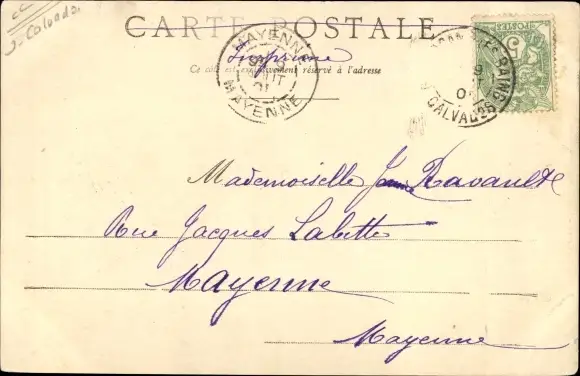 CC
Calvados
CARTE POSTALE
Imprimé
Ce côté est exclusivement réservé à l'adresse
MAYENNE
AOUT
01
MAYENNE
BAINS
9
0
CALVADOS
POSTES
5
Mademoiselle Jeanne Ravault
Rue Jacques Labitte
Mayenne
Mayenne